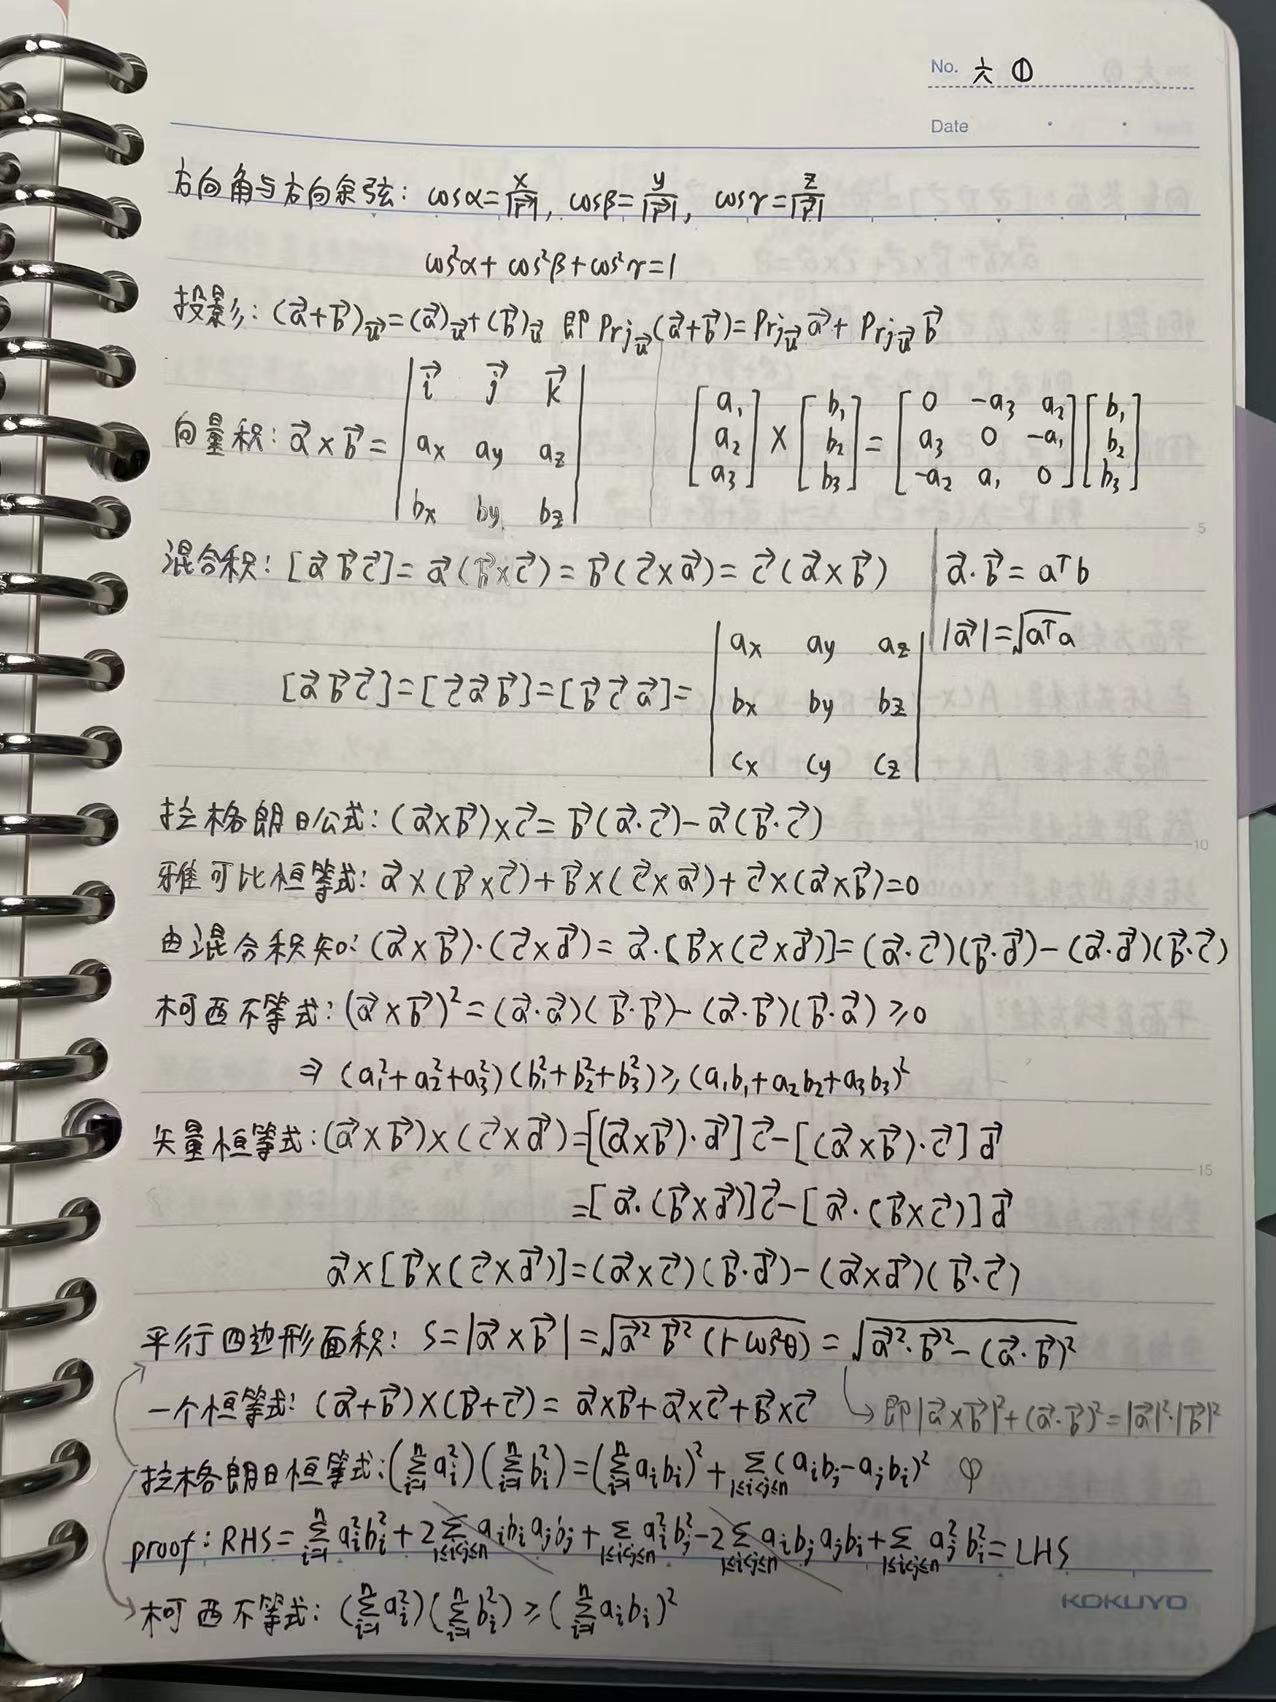 No. 六 ①
Date
方向角与方向余弦: cosα=x/|r⃗|, cosβ=y/|r⃗|, cosγ=z/|r⃗|
cos²α+cos²β+cos²γ=1
投影: (a⃗+b⃗)_u⃗=(a⃗)_u⃗+(b⃗)_u⃗ 即 Prj_u⃗(a⃗+b⃗)=Prj_u⃗ a⃗+Prj_u⃗ b⃗
向量积: a⃗×b⃗= |i⃗ j⃗ k⃗; ax ay az; bx by bz| [a₁; a₂; a₃]×[b₁; b₂; b₃]=[0 -a₃ a₂; a₃ 0 -a₁; -a₂ a₁ 0][b₁; b₂; b₃]
5
混合积: [a⃗ b⃗ c⃗]=a⃗(b⃗×c⃗)=b⃗(c⃗×a⃗)=c⃗(a⃗×b⃗) a⃗·b⃗=aᵀb
|a⃗|=√(aᵀa)
[a⃗ b⃗ c⃗]=[c⃗ a⃗ b⃗]=[b⃗ c⃗ a⃗]= |ax ay az; bx by bz; cx cy cz|
拉格朗日公式: (a⃗×b⃗)×c⃗=b⃗(a⃗·c⃗)-a⃗(b⃗·c⃗)
10
雅可比恒等式: a⃗×(b⃗×c⃗)+b⃗×(c⃗×a⃗)+c⃗×(a⃗×b⃗)=0
由混合积知: (a⃗×b⃗)·(c⃗×d⃗)=a⃗·[b⃗×(c⃗×d⃗)]=(a⃗·c⃗)(b⃗·d⃗)-(a⃗·d⃗)(b⃗·c⃗)
柯西不等式: (a⃗×b⃗)²=(a⃗·a⃗)(b⃗·b⃗)-(a⃗·b⃗)(b⃗·a⃗)≥0
⇒(a₁²+a₂²+a₃²)(b₁²+b₂²+b₃²)≥(a₁b₁+a₂b₂+a₃b₃)²
矢量恒等式: (a⃗×b⃗)×(c⃗×d⃗)=[(a⃗×b⃗)·d⃗]c⃗-[(a⃗×b⃗)·c⃗]d⃗
15
=[a⃗·(b⃗×d⃗)]c⃗-[a⃗·(b⃗×c⃗)]d⃗
a⃗×[b⃗×(c⃗×d⃗)]=(a⃗×c⃗)(b⃗·d⃗)-(a⃗×d⃗)(b⃗·c⃗)
平行四边形面积: S=|a⃗×b⃗|=√(a⃗² b⃗²(1-cos²θ))=√(a⃗²·b⃗²-(a⃗·b⃗)²)
一个恒等式: (a⃗+b⃗)×(b⃗+c⃗)=a⃗×b⃗+a⃗×c⃗+b⃗×c⃗ 即|a⃗×b⃗|²+(a⃗·b⃗)²=|a⃗|²·|b⃗|²
拉格朗日恒等式: (Σ_{i=1}^n aᵢ²)(Σ_{i=1}^n bᵢ²)=(Σ_{i=1}^n aᵢbᵢ)²+Σ_{1≤i<j≤n}(aᵢbⱼ-aⱼbᵢ)²
proof: RHS=Σ_{i=1}^n aᵢ²bᵢ²+2Σ_{1≤i<j≤n} aᵢbᵢaⱼbⱼ+Σ_{1≤i<j≤n} aᵢ²bⱼ²-2Σ_{1≤i<j≤n} aᵢbⱼaⱼbᵢ+Σ_{1≤i<j≤n} aⱼ²bᵢ²=LHS
柯西不等式: (Σ_{i=1}^n aᵢ²)(Σ_{i=1}^n bᵢ²)≥(Σ_{i=1}^n aᵢbᵢ)²
KOKUYO